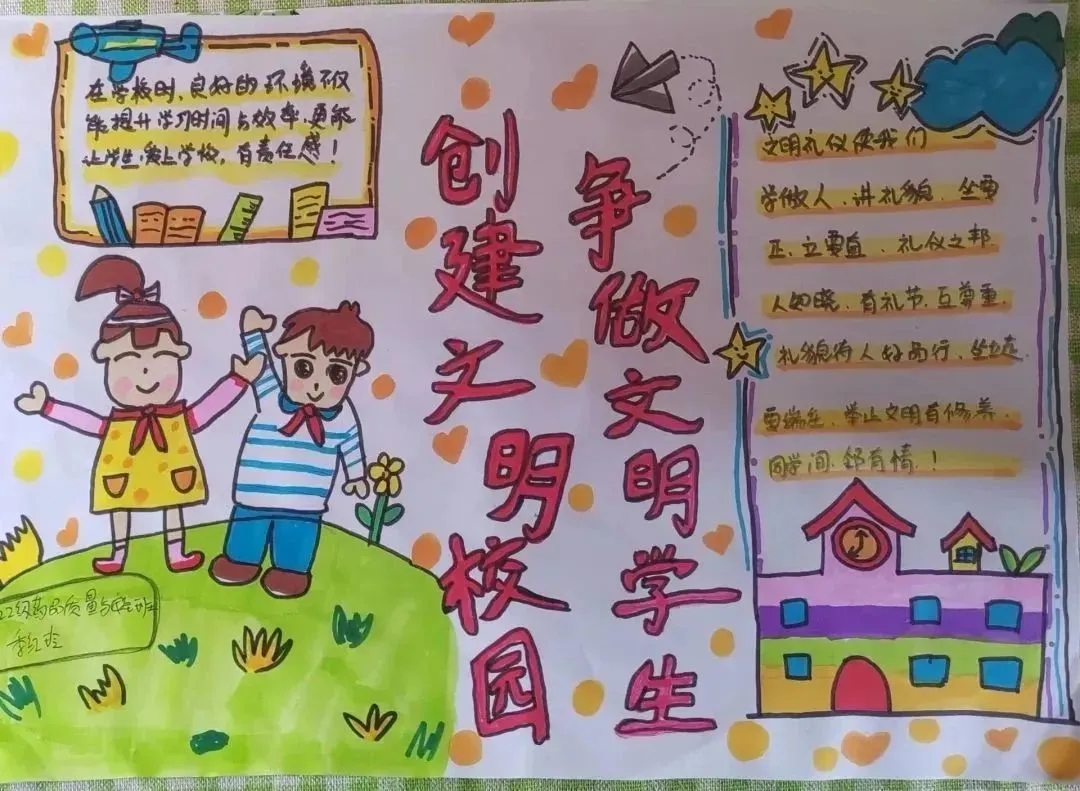 在学校时，良好的环境不仅
能提升学习时间与效率，更能
让学生爱上学校，有责任感！
创建文明校园
争做文明学生
文明礼仪使我们
学做人、讲礼貌、坐要
正、立要直、礼仪之邦
人知晓、有礼节、互尊重、
礼貌待人好品行、坐立走
要端庄、举止文明有修养、
同学间、邻有情！
22级药品质量与安全班